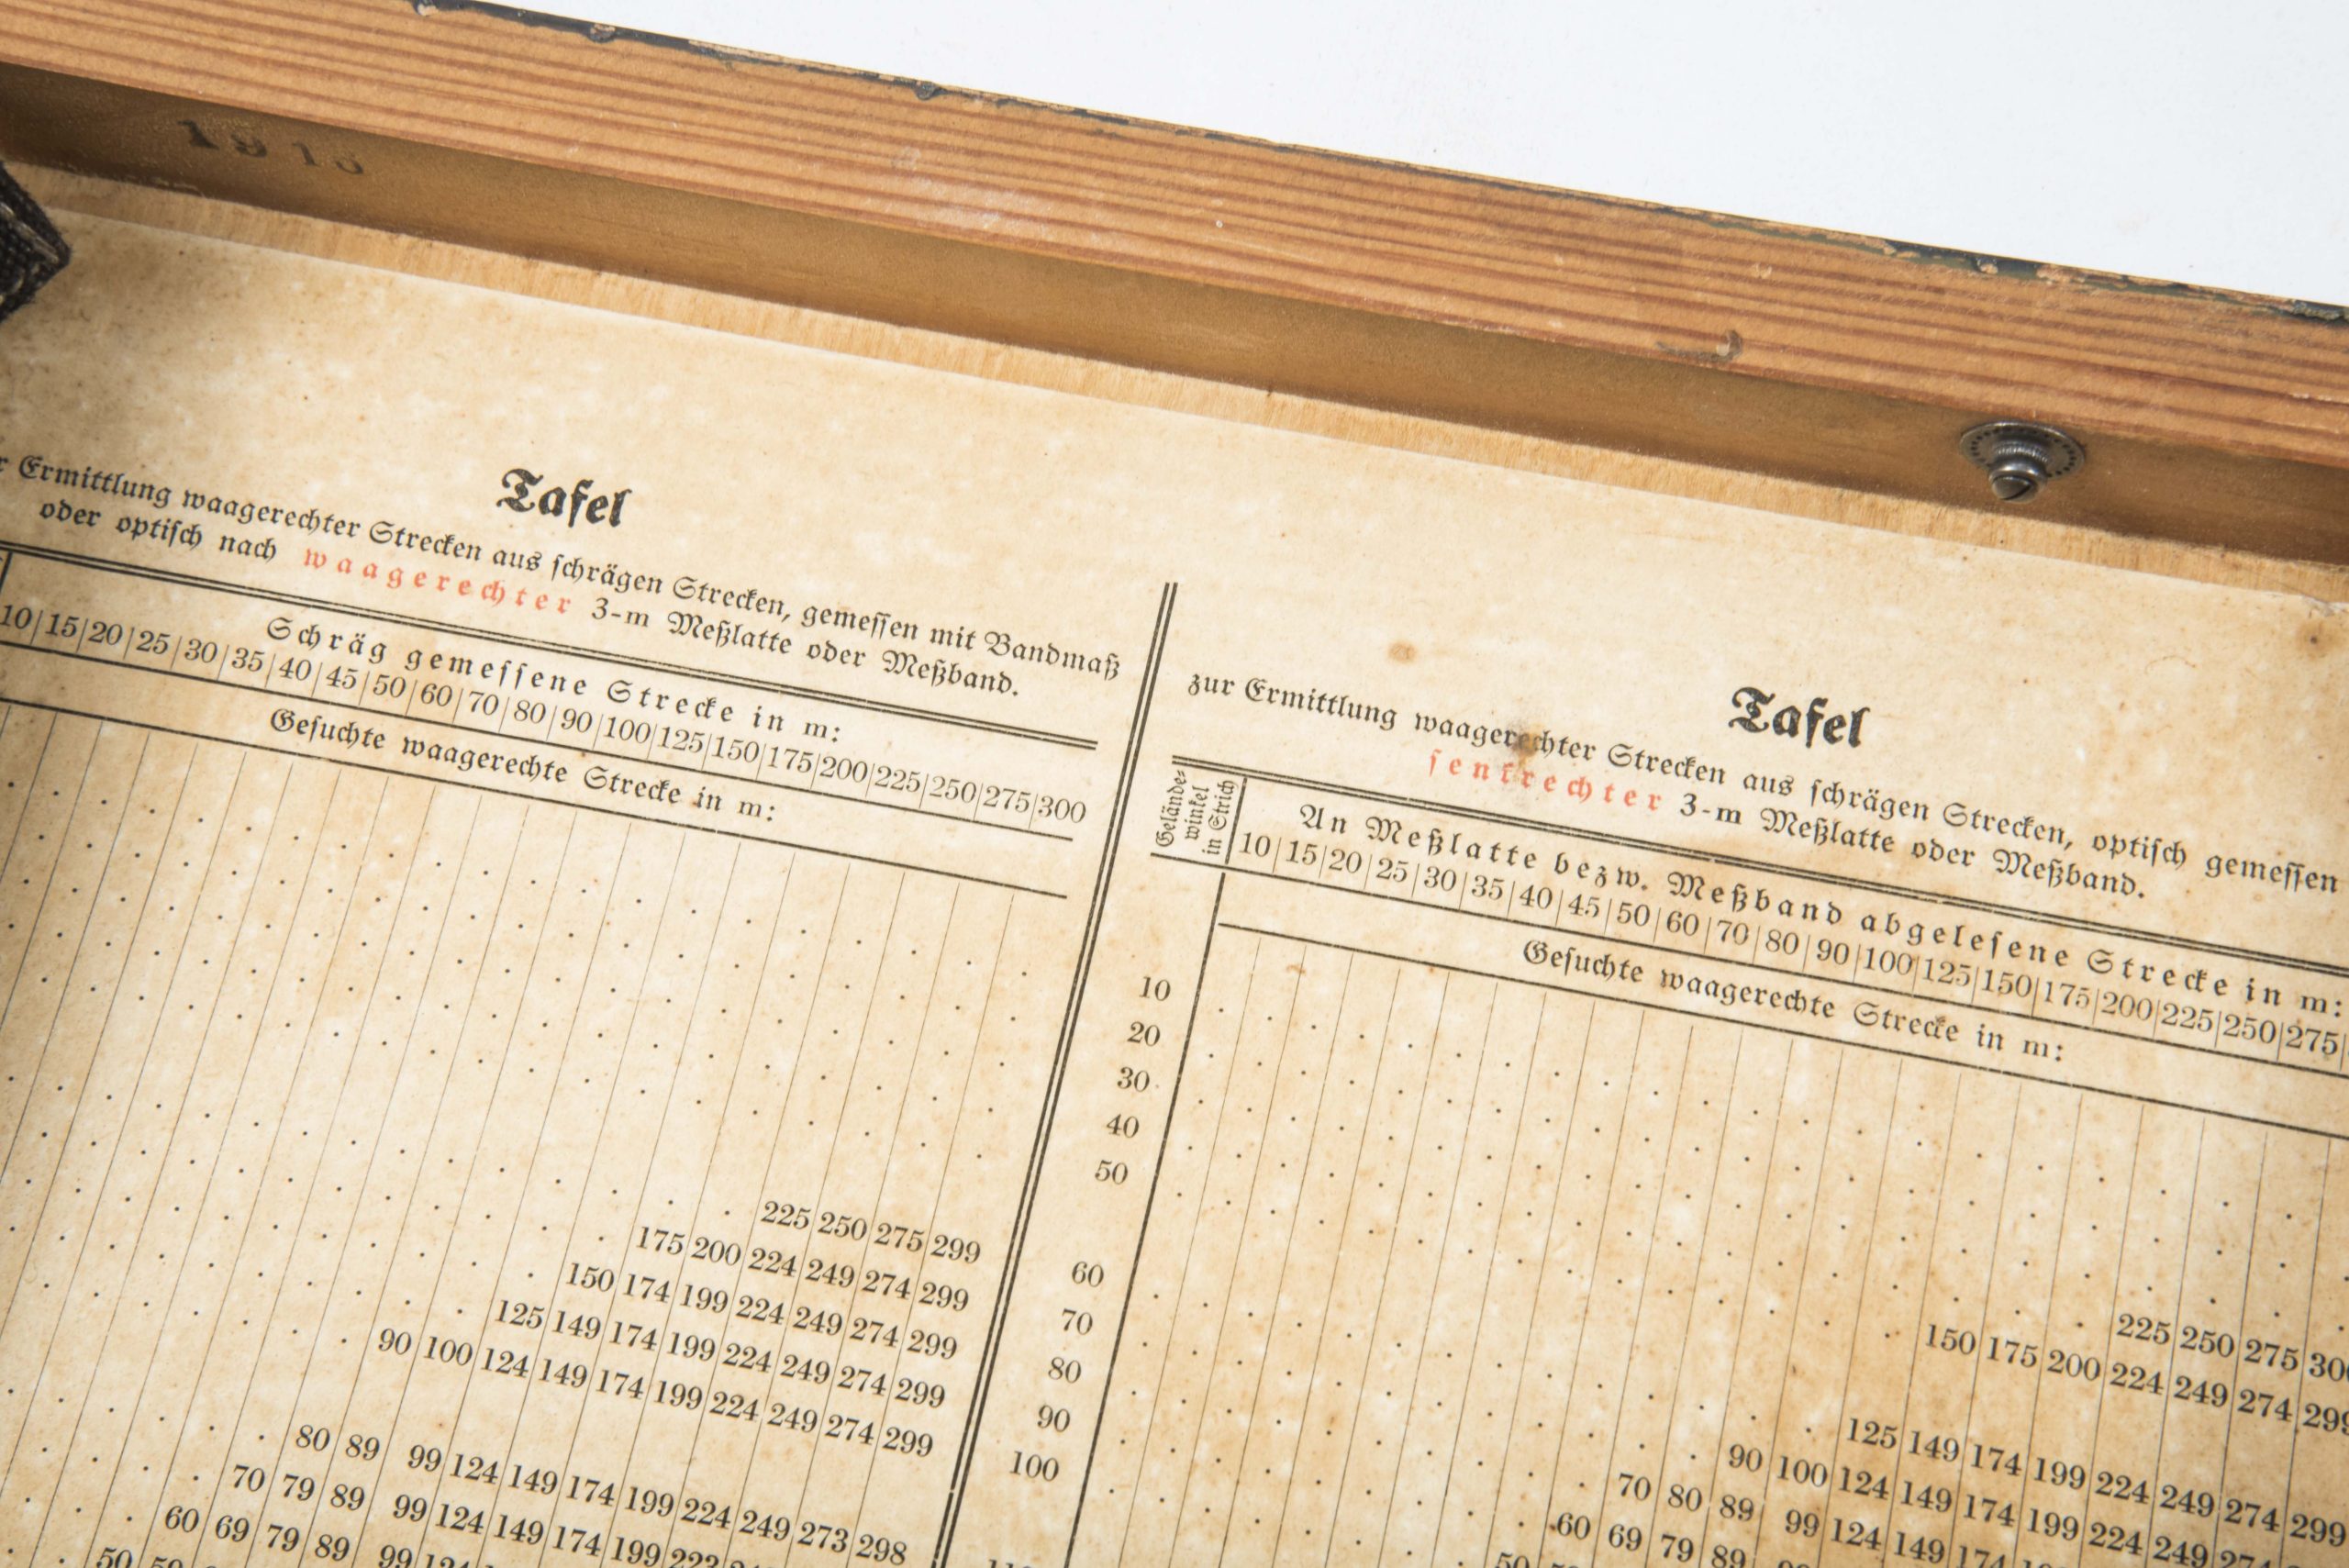 Tafel
Ermittlung waagerechter Strecken aus ſchrägen Strecken, gemeſſen mit Bandmaß
oder optiſch nach waagerechter 3-m Meßlatte oder Meßband.
Schräg gemeſſene Strecke in m:
10 15 20 25 30 35 40 45 50 60 70 80 90 100 125 150 175 200 225 250 275 300
Geſuchte waagerechte Strecke in m:
225 250 275 299
175 200 224 249 274 299
150 174 199 224 249 274 299
125 149 174 199 224 249 274 299
90 100 124 149 174 199 224 249 274 299
80 89 99 124 149 174 199 224 249 273 298
70 79 89 99 124 149 174 199 223
60 69 79 89 99
50
Tafel
zur Ermittlung waagerechter Strecken aus ſchrägen Strecken, optiſch gemeſſen
ſenkrechter 3-m Meßlatte oder Meßband.
Gelände-
winkel
in Strich
An Meßlatte bezw. Meßband abgeleſene Strecke in m:
10 15 20 25 30 35 40 45 50 60 70 80 90 100 125 150 175 200 225 250 275
Geſuchte waagerechte Strecke in m:
10
20
30
40
50
60 225 250 275
70 150 175 200 224 249 274 299
80 125 149 174 199 224 249 274 299
90 90 100 124 149 174 199 224 249
100 70 80 89 99 124 149 174
60 69 79 89
50